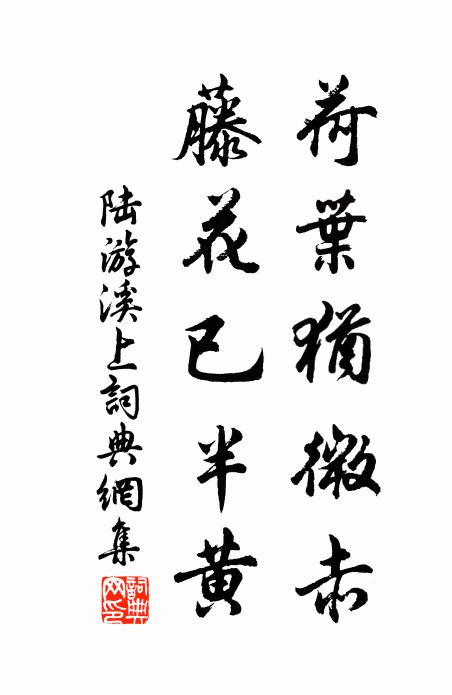 荷葉猶微赤
藤花已半黄
陆游溪上詞典網集
詞典網印